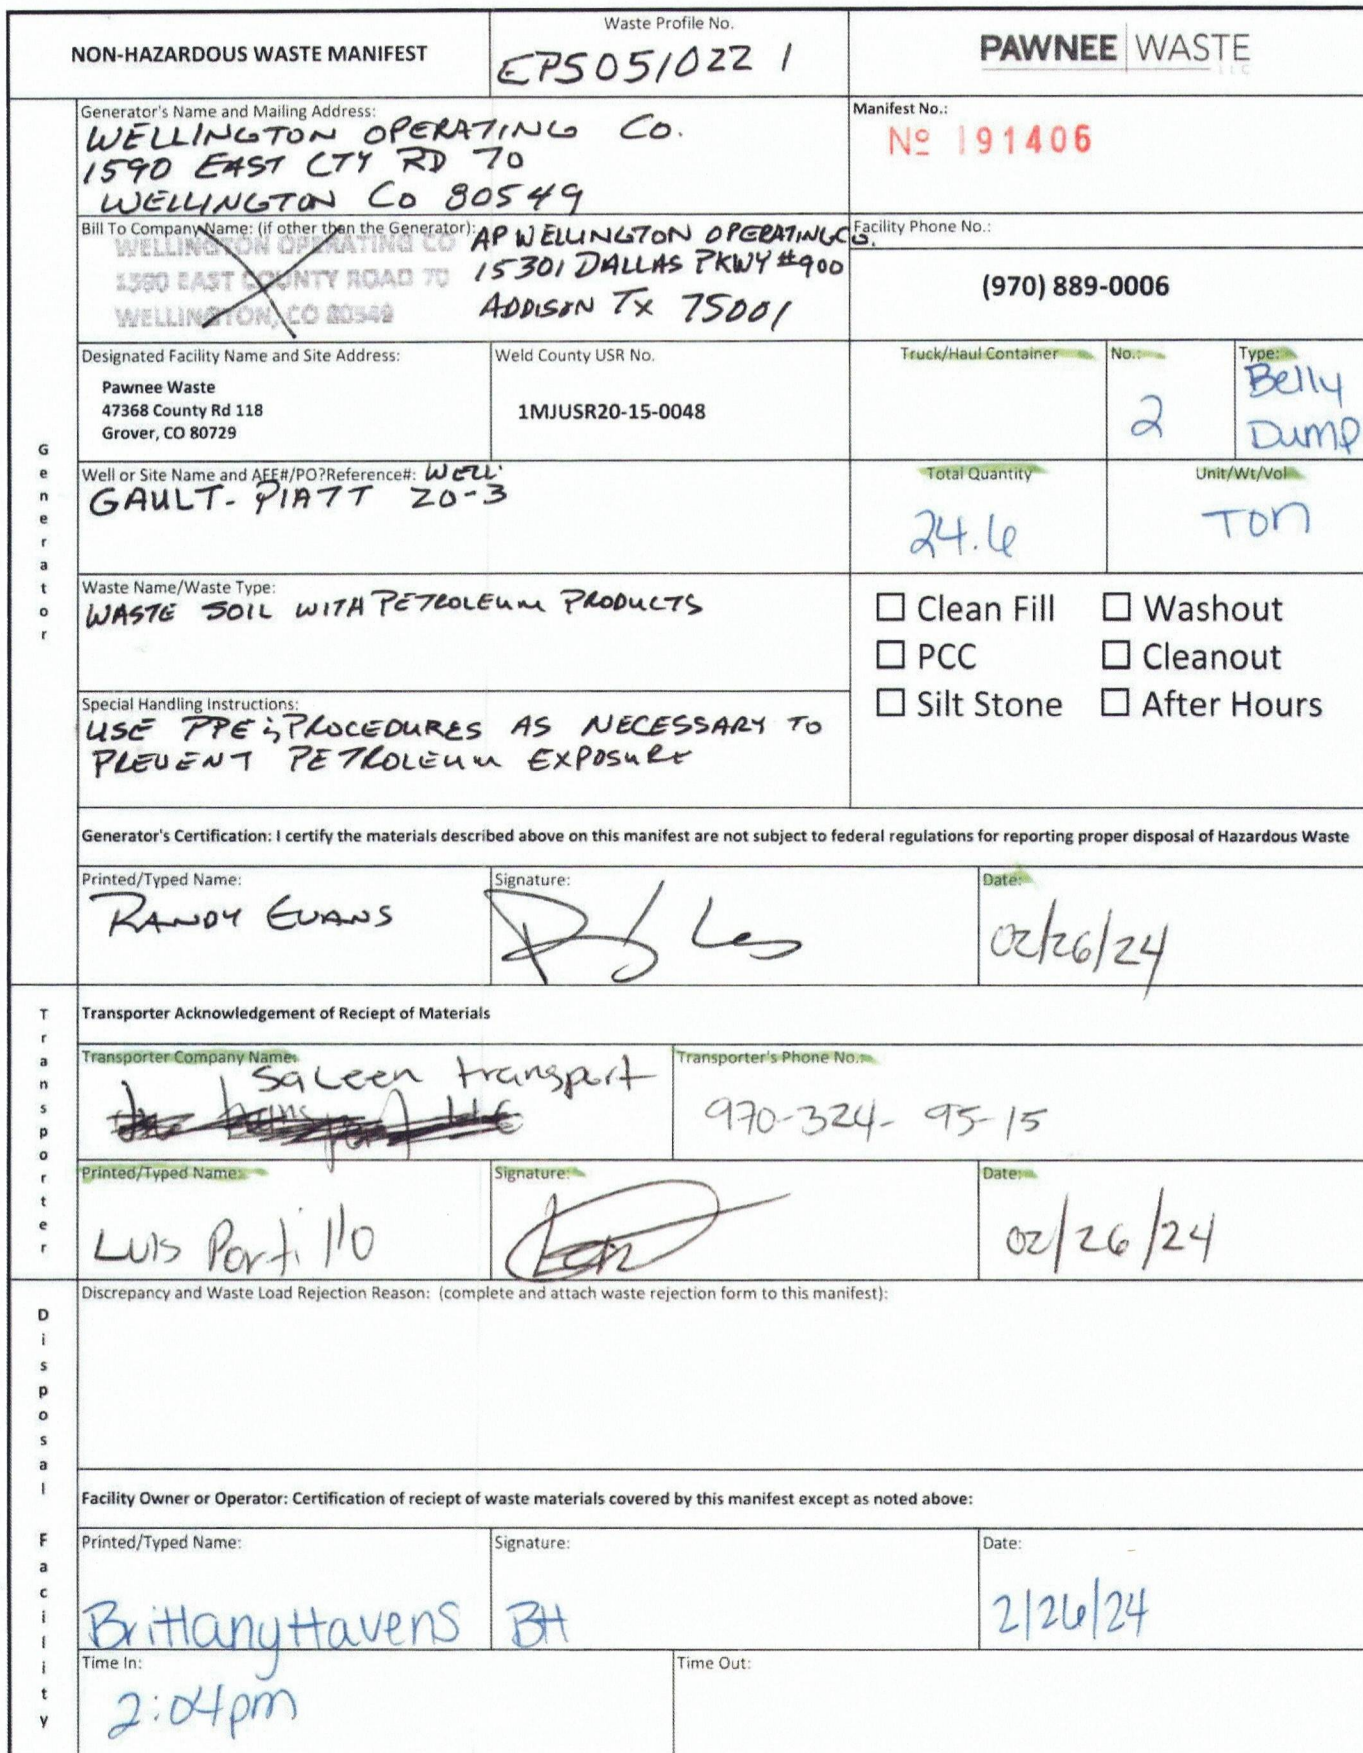 NON-HAZARDOUS WASTE MANIFEST
Waste Profile No.
EPS051022 1
PAWNEE WASTE
LLC
Generator's Name and Mailing Address:
WELLINGTON OPERATING CO.
1590 EAST CTY RD 70
WELLINGTON CO 80549
Manifest No.:
Nº 191406
Bill To Company Name: (if other then the Generator):
WELLINGTON OPERATING CO
1590 EAST COUNTY ROAD 70
WELLINGTON, CO 80549
AP WELLINGTON OPERATING CO.
15301 DALLAS PKWY #900
ADDISON TX 75001
Facility Phone No.:
(970) 889-0006
Designated Facility Name and Site Address:
Pawnee Waste
47368 County Rd 118
Grover, CO 80729
Weld County USR No.
1MJUSR20-15-0048
Truck/Haul Container
No.:
2
Type:
Belly
Dump
Generator
Well or Site Name and AFE#/PO?Reference#: WELL:
GAULT-PIATT 20-3
Total Quantity
24.6
Unit/Wt/Vol
TON
Waste Name/Waste Type:
WASTE SOIL WITH PETROLEUM PRODUCTS
☐ Clean Fill ☐ Washout
☐ PCC ☐ Cleanout
☐ Silt Stone ☐ After Hours
Special Handling Instructions:
USE PPE & PROCEDURES AS NECESSARY TO
PREVENT PETROLEUM EXPOSURE
Generator's Certification: I certify the materials described above on this manifest are not subject to federal regulations for reporting proper disposal of Hazardous Waste
Printed/Typed Name:
RANDY EVANS
Signature:
Date:
02/26/24
Transporter
Transporter Acknowledgement of Reciept of Materials
Transporter Company Name:
Saleen transport
Transporter's Phone No.:
970-324-95-15
Printed/Typed Name:
Luis Portillo
Signature:
Date:
02/26/24
Disposal Facility
Discrepancy and Waste Load Rejection Reason: (complete and attach waste rejection form to this manifest):
Facility Owner or Operator: Certification of reciept of waste materials covered by this manifest except as noted above:
Printed/Typed Name:
Brittany Havens
Signature:
BH
Date:
2/26/24
Time In:
2:04pm
Time Out: